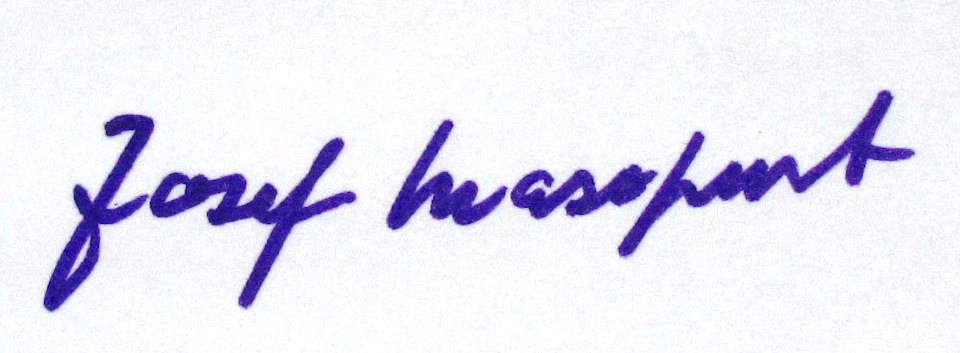 Josef Masopust